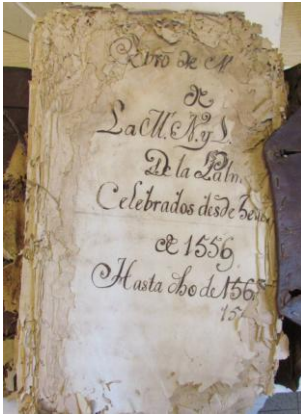 Libro de A
de
La M. N. y L.
De la Palm
Celebrados desde
de 1556
Hasta dho de 156
15